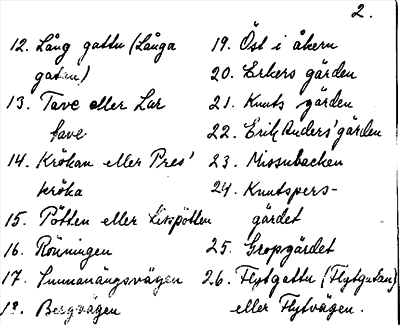 2.
12. Lång gattu (Långa
gatan)
13. Tave eller Lar
tave
14. Krökan eller Pres'
kröka
15. Pötten eller Likpötten
16. Rönningen
17. Innanängsvägen
18. Bergvägen
19. Öst i åkern
20. Erkers gärden
21. Knuts gärden
22. Erik Anders' gärden
23. Missnbacken
24. Knutspers-
gärdet
25. Gropgärdet
26. Flytgattu (Flytgatan)
eller Flytvägen.